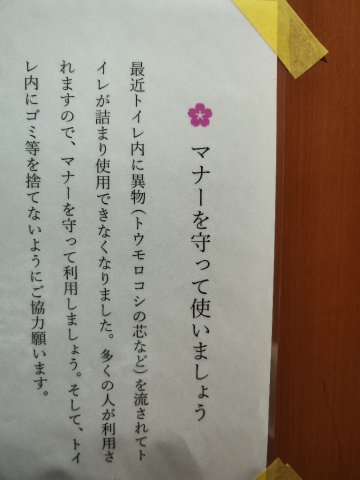 マナーを守って使いましょう
最近トイレ内に異物(トウモロコシの芯など)を流されてト
イレが詰まり使用できなくなりました。多くの人が利用さ
れますので、マナーを守って利用しましょう。そして、トイ
レ内にゴミ等を捨てないようにご協力願います。